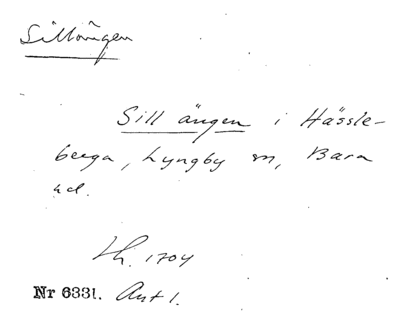 Sillängen
Sill ängen i Hässle-
berga, Lyngby sn, Bara
hd.
Lh. 1704
Nr 6331. Ant 1.